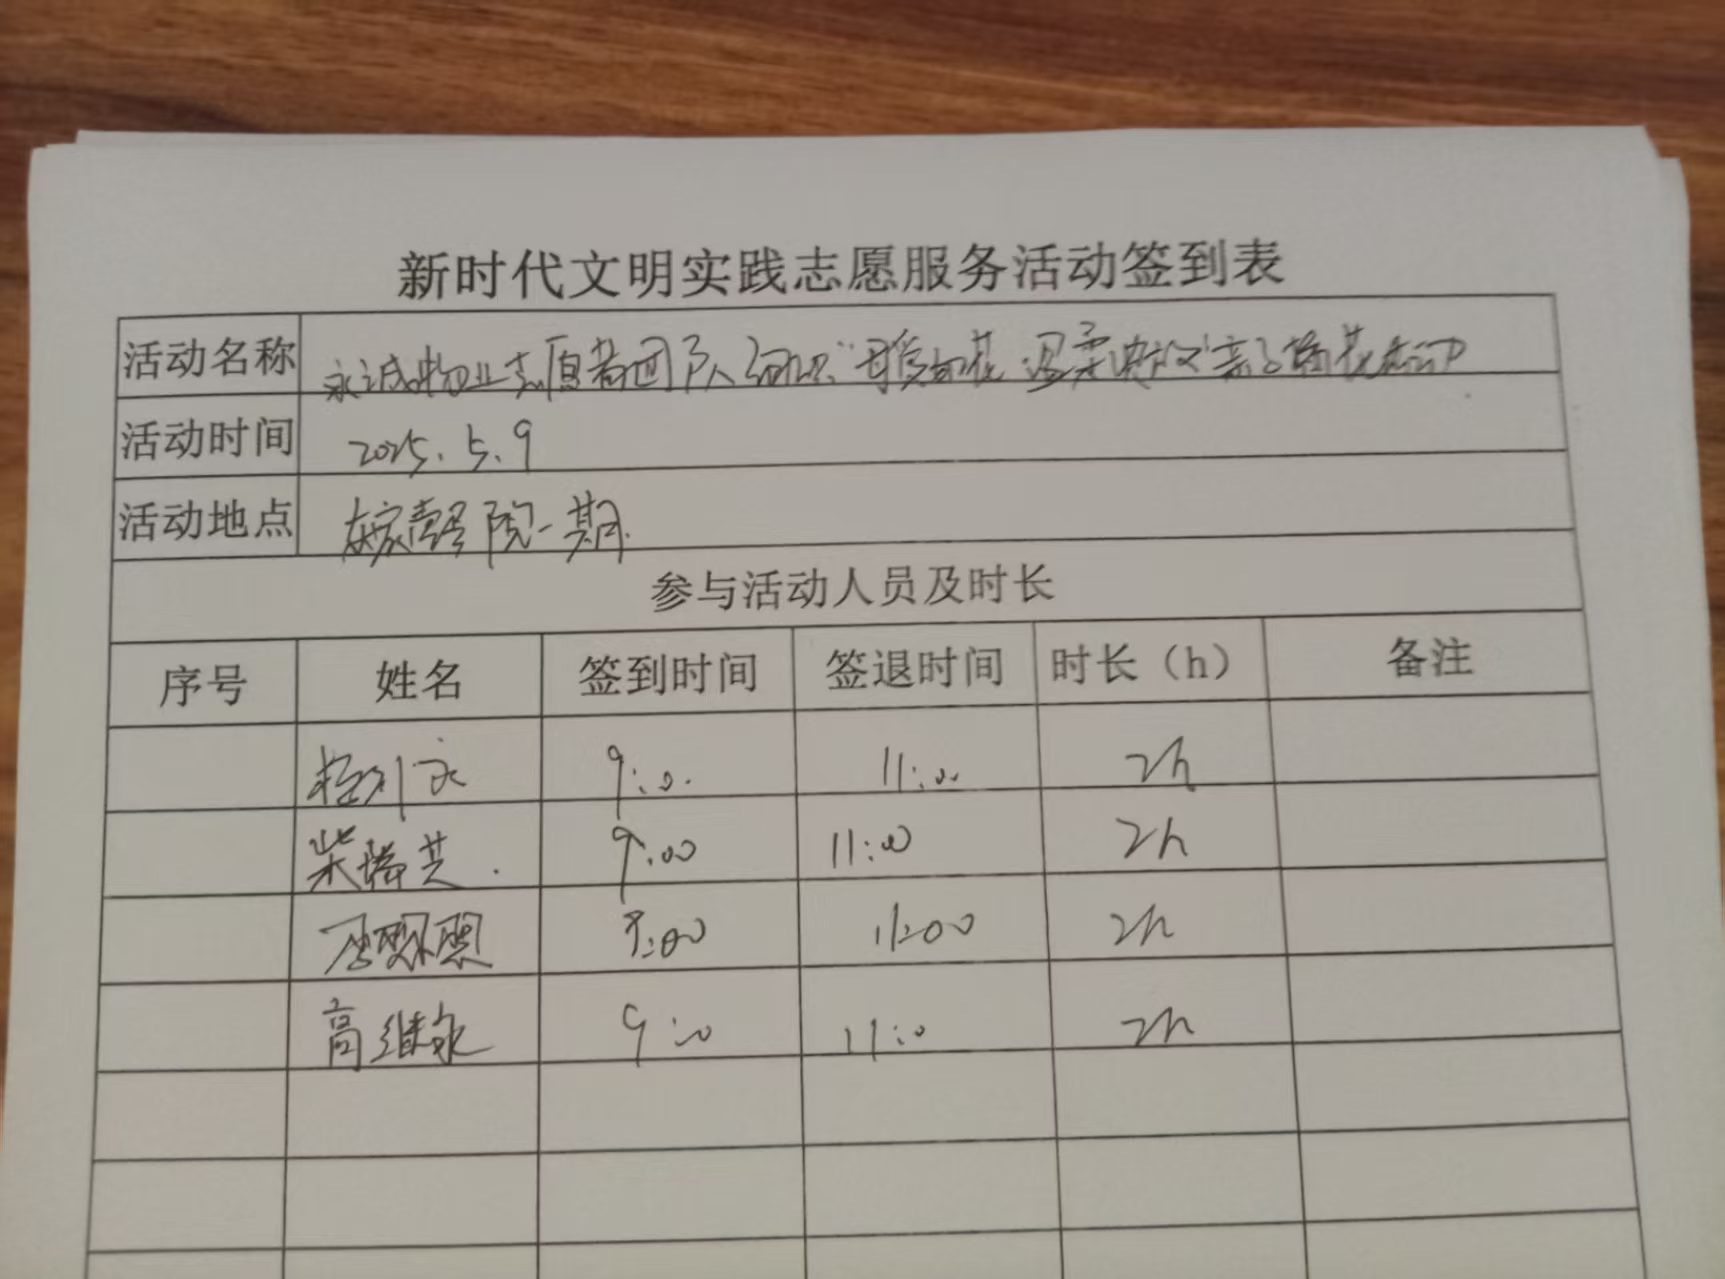 新时代文明实践志愿服务活动签到表
活动名称 永诚物业志愿者团队组织"母爱如花 温柔绽放"亲子插花活动
活动时间 2025.5.9
活动地点 院一期
参与活动人员及时长
序号 姓名 签到时间 签退时间 时长（h） 备注
9:00 11:00 2h
柴瑞芝 9:00 11:00 2h
9:00 11:00 2h
高继永 9:00 11:00 2h